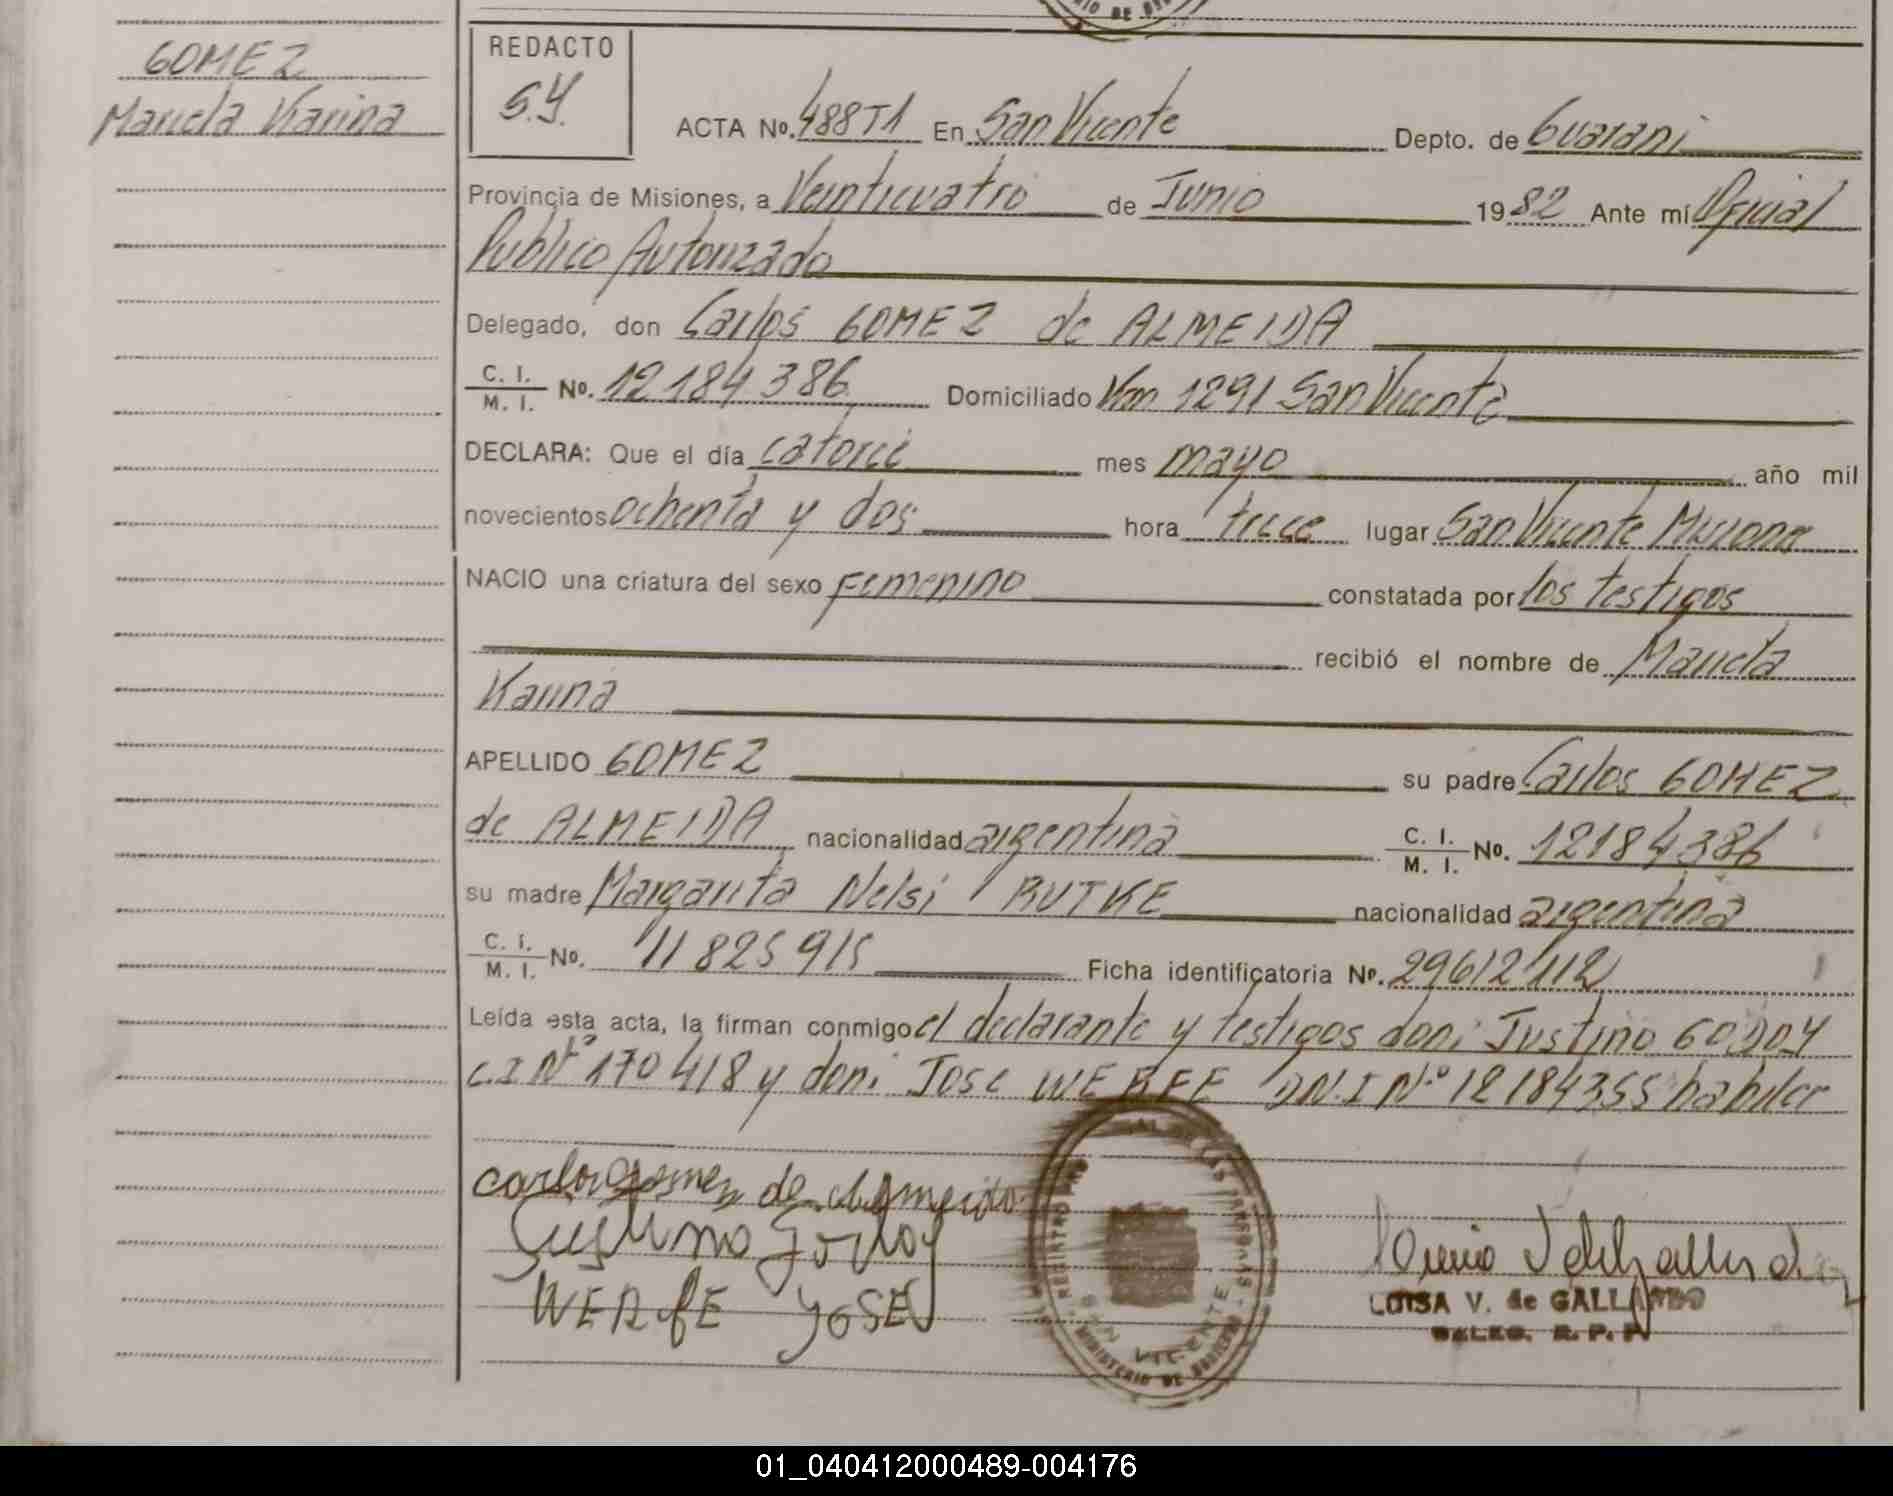 GOMEZ
Mariela Karina
REDACTO
S.Y.
ACTA No. 488T1 En San Vicente Depto. de Guarani
Provincia de Misiones, a Veinticuatro de Junio 1982 Ante mí Oficial
Publico Autorizado
Delegado, don Carlos GOMEZ de ALMEIDA
C. I.
M. I. No. 12184386 Domiciliado Km 1291 San Vicente
DECLARA: Que el día catorce mes mayo año mil
novecientos ochenta y dos hora trece lugar San Vicente Misiones
NACIO una criatura del sexo Femenino constatada por los testigos
recibió el nombre de Mariela
Karina
APELLIDO GOMEZ su padre Carlos GOMEZ
de ALMEIDA nacionalidad argentina C. I.
M. I. No. 12184386
su madre Margarita Nelsi RUTKE nacionalidad argentina
C. I.
M. I. No. 11825915 Ficha identificatoria No. 29612112
Leída esta acta, la firman conmigo el declarante y testigos don: Justino GODOY
C.I Nº 170418 y don: Jose WERFE DN.I Nº 12184355 habiles
carlos gomes de almeida
Justino Godoy
WERFE JOSE
REGISTRO PRO DE LAS PERSONAS
SAN VICENTE
MINISTERIO DE
LUISA V. de GALLARDO
DELEG. R. P. P.
01_040412000489-004176